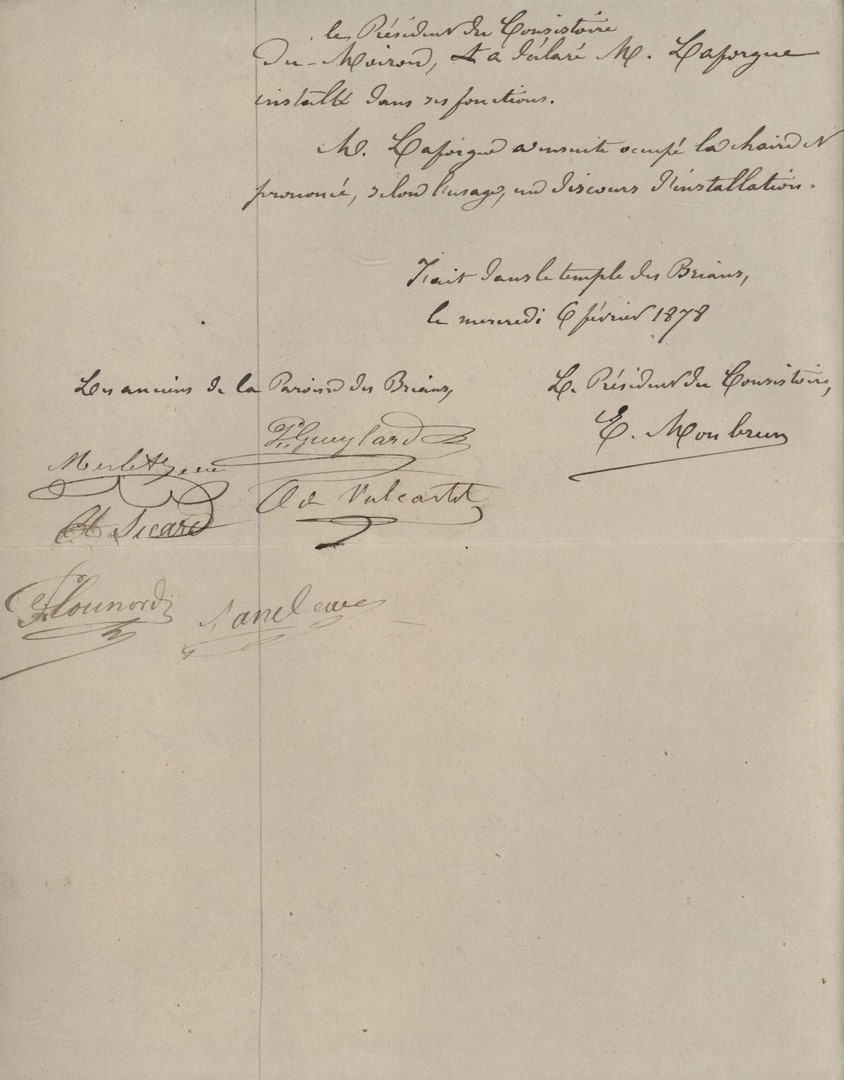 le Président du Consistoire
Du-Moiron, a déclaré M. Laforgue
installé dans ses fonctions.
M. Laforgue a ensuite occupé la chaire et
prononcé, selon l'usage, un discours d'installation.
Fait dans le temple des Briaux,
le mercredi 6 février 1878
Les anciens de la Paroisse des Briaux,
Le Président du Consistoire,
E. Monbrun
Sicard